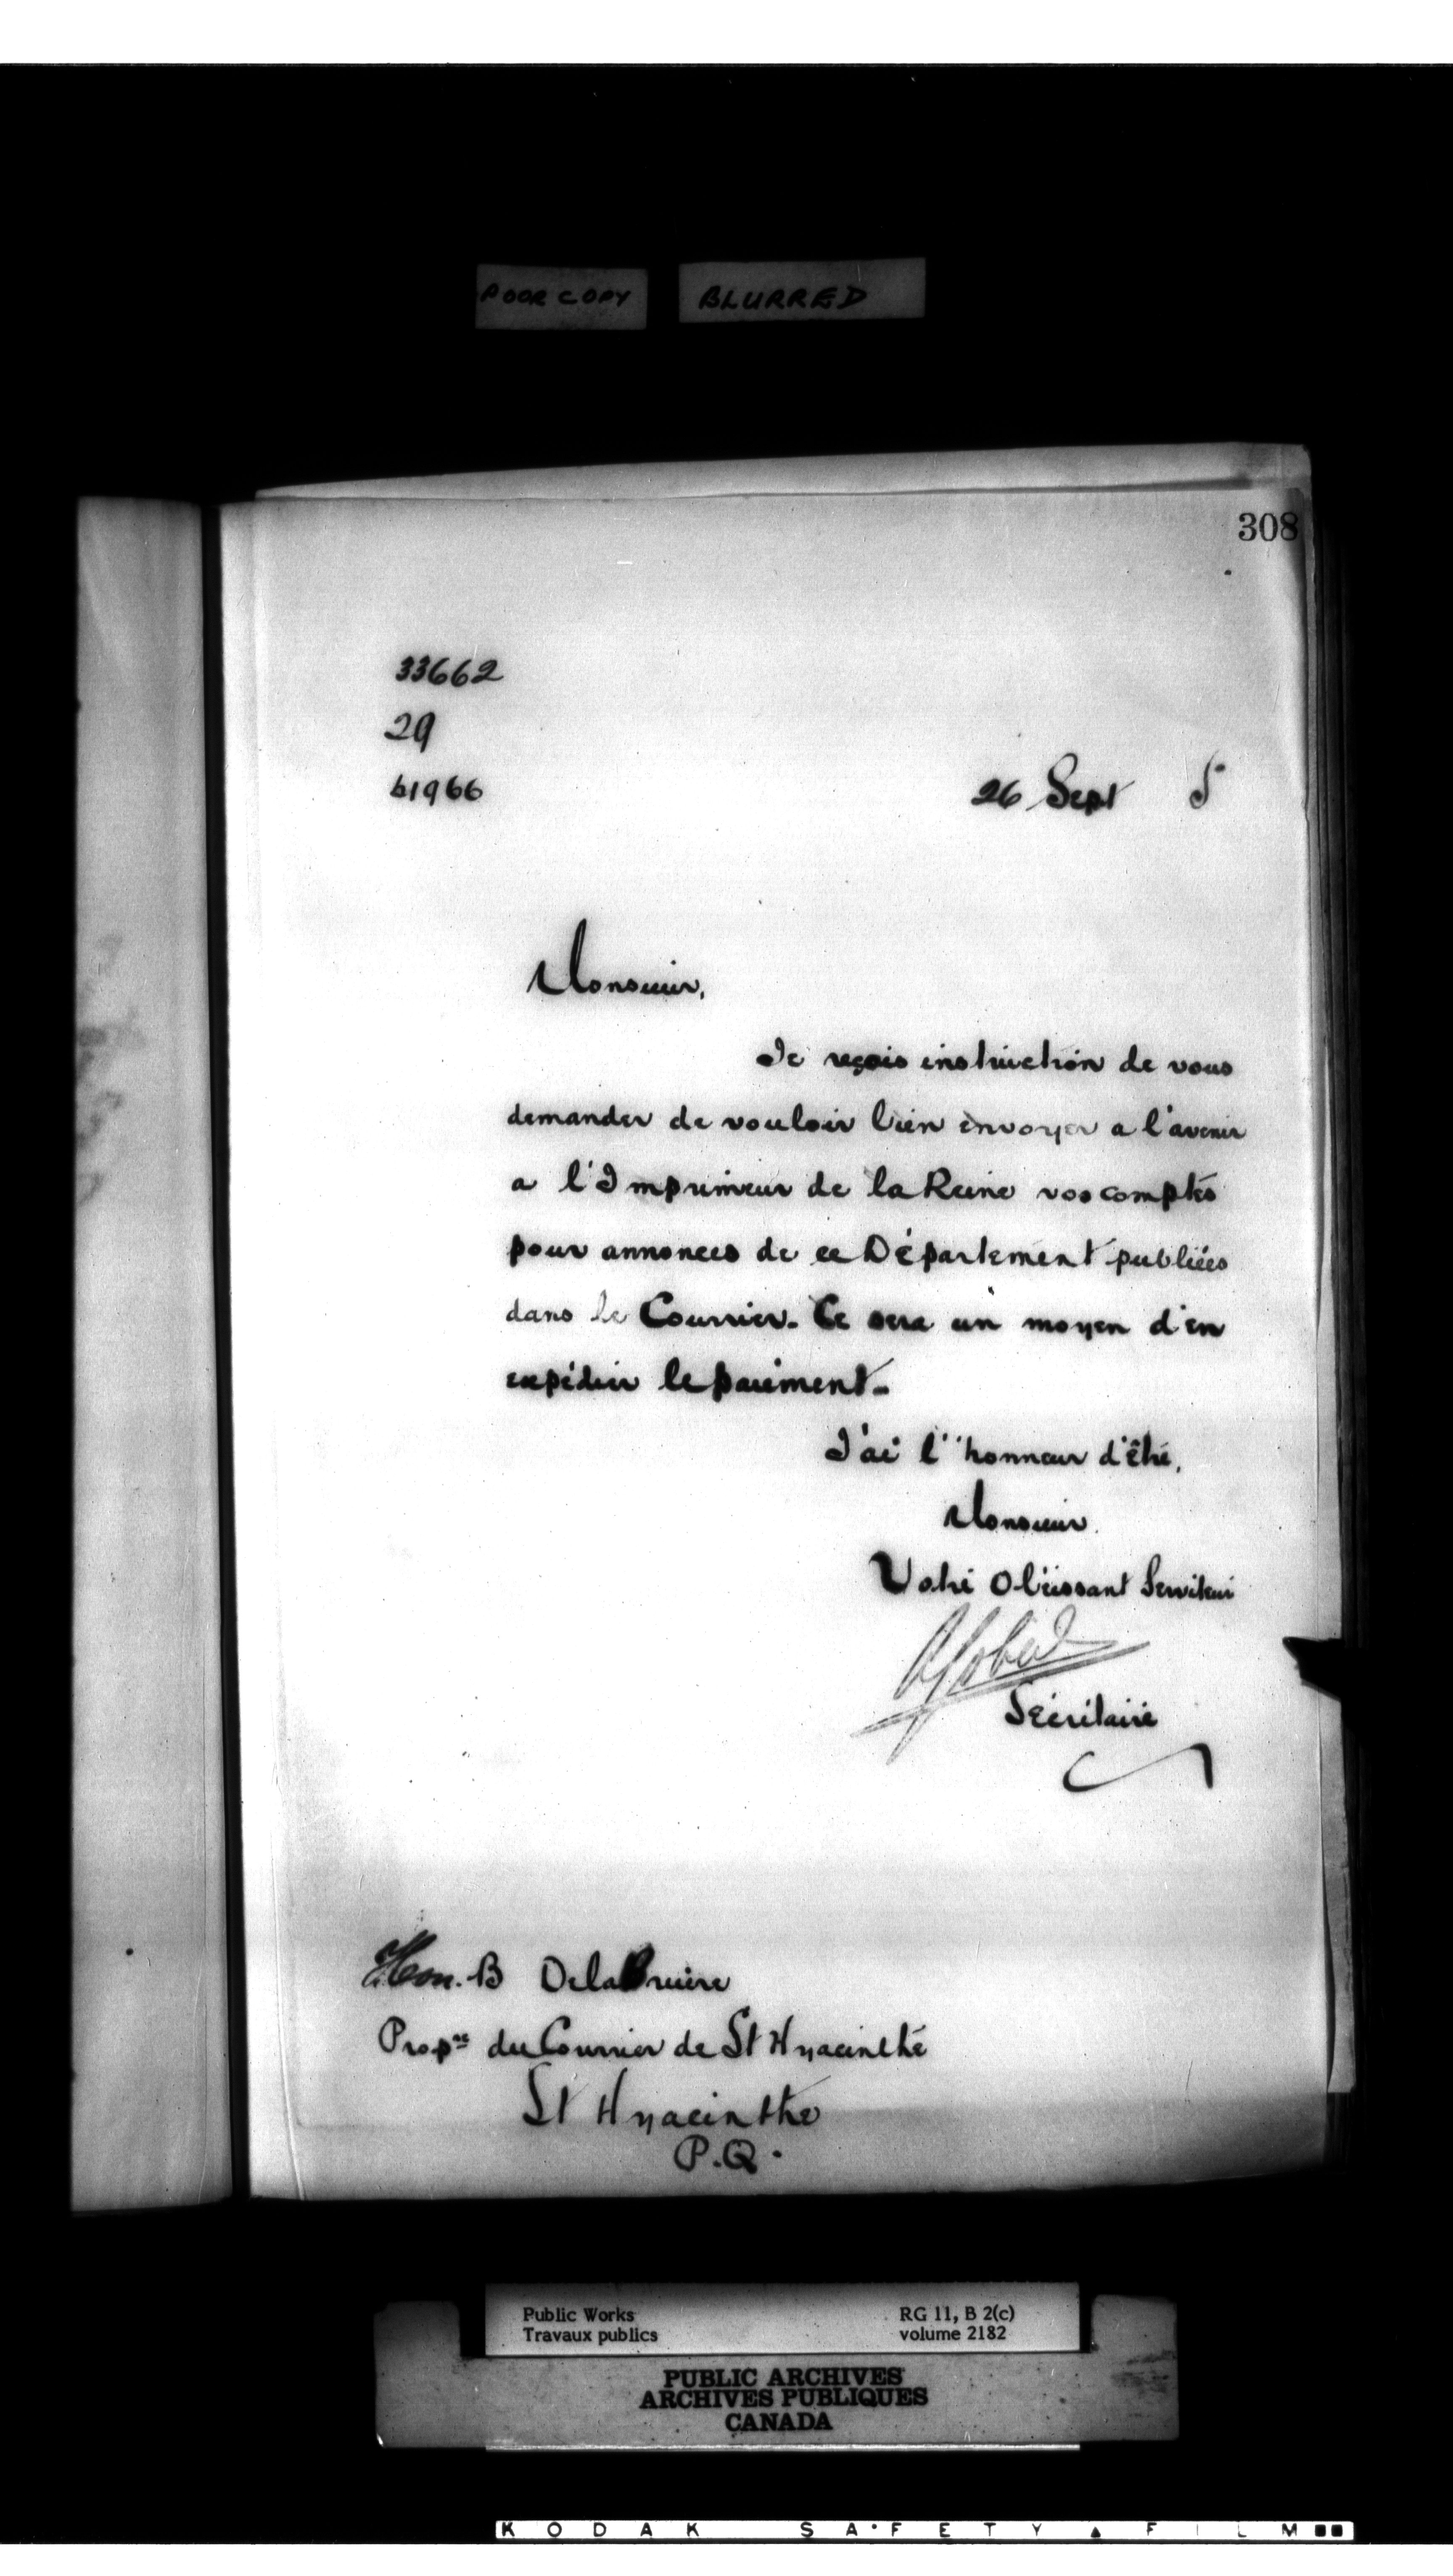 POOR COPY BLURRED
308
33662
29
61966
26 Sept 5
Monsieur,
Je reçois instruction de vous
demander de vouloir bien envoyer a l'avenir
a l'Imprimeur de la Reine vos comptes
pour annonces de ce Département publiées
dans le Courrier. Ce sera un moyen d'en
expédier le paiement.
J'ai l'honneur d'être,
Monsieur
Votre Obéissant Serviteur
Secrétaire
Hon. B DelaBruère
Propre du Courrier de St Hyacinthe
St Hyacinthe
P.Q.
Public Works RG 11, B 2(c)
Travaux publics volume 2182
PUBLIC ARCHIVES
ARCHIVES PUBLIQUES
CANADA
KODAK SAFETY FILM